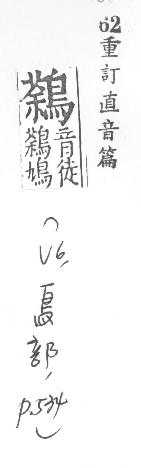 62重訂直音篇
鷋
音徒
鷋鳩
(V6,鳥部,p.534)